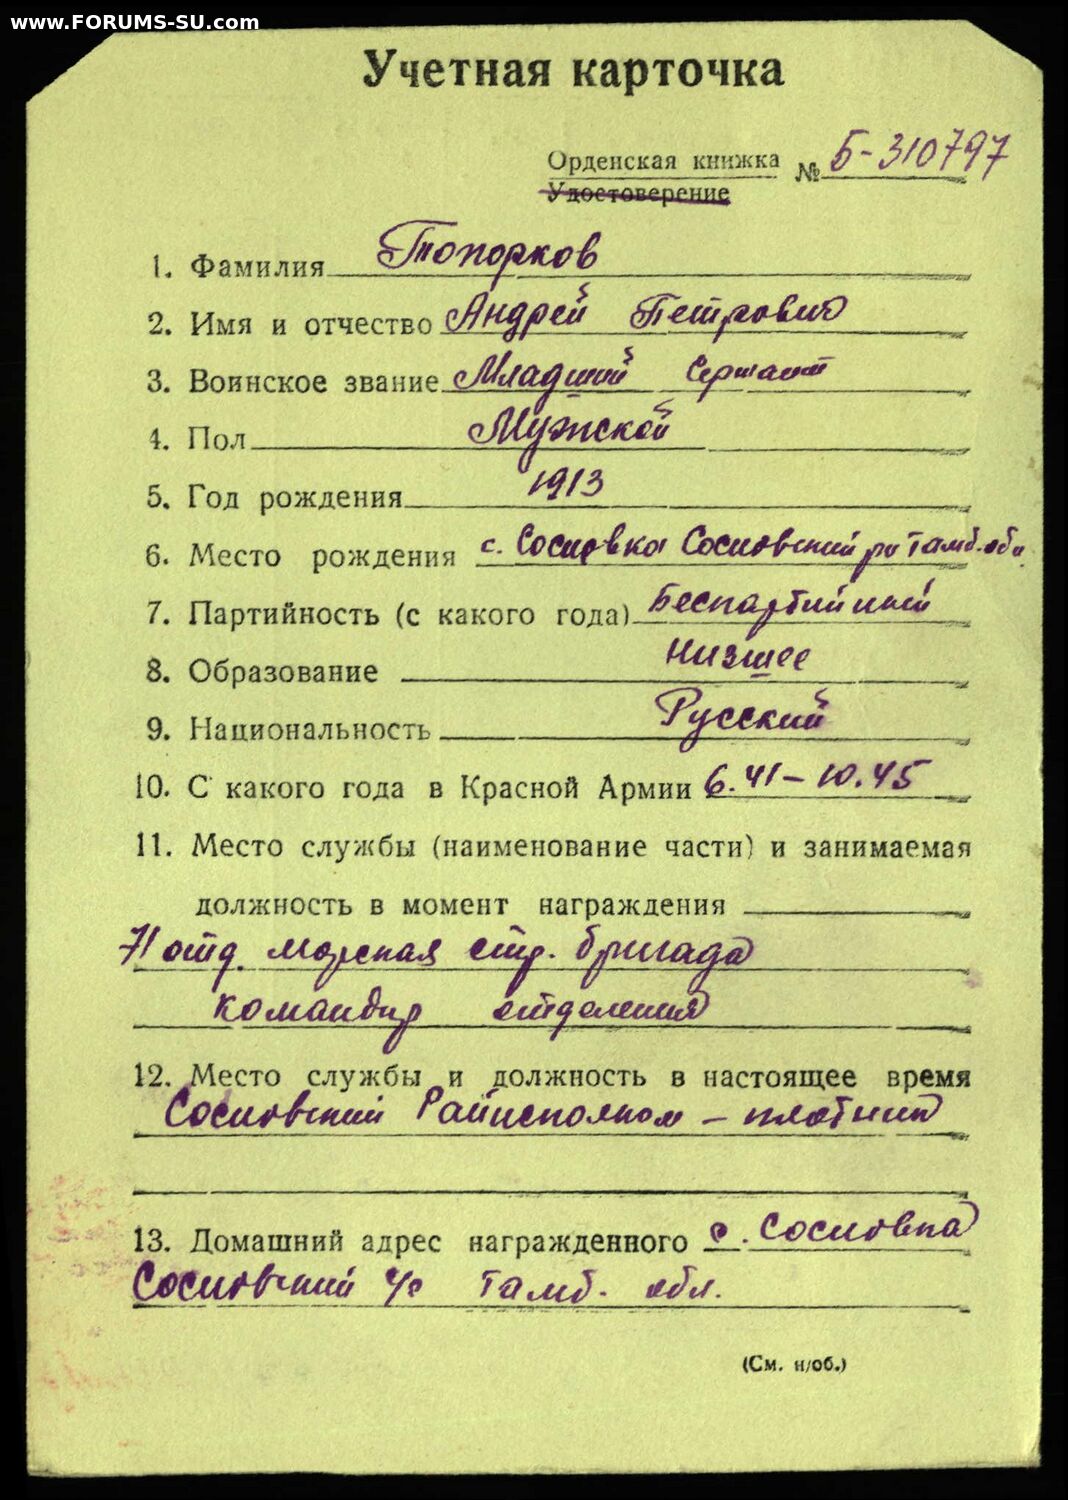 www.FORUMS-SU.com
Учетная карточка
Орденская книжка № Б-310797
Удостоверение
1. Фамилия Топорков
2. Имя и отчество Андрей Петрович
3. Воинское звание Младший Сержант
4. Пол Мужской
5. Год рождения 1913
6. Место рождения с. Сосновка Сосновский рн Тамб. обл
7. Партийность (с какого года) Беспартийный
8. Образование низшее
9. Национальность Русский
10. С какого года в Красной Армии 6.41 – 10.45
11. Место службы (наименование части) и занимаемая
должность в момент награждения
71 отд. морская стр. бригада
командир отделения
12. Место службы и должность в настоящее время
Сосновский Райисполком – плотник
13. Домашний адрес награжденного с. Сосновка
Сосновский с/с Тамб. обл.
(См. н/об.)